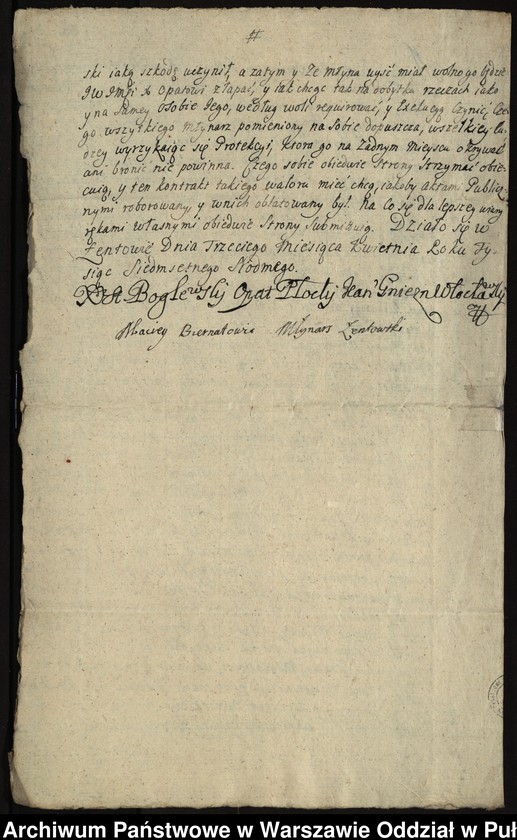 #
ski iaką szkodę uczynił, a zatym y ze młyna uyść miał wolno go będzie
JW JMP X Opatowi złapać, y iak chcąc tak na dobytku rzeczach iako
y na samey osobie Jego, według woli requirować, y Exekucyą czynić, Cze-
go wszystkiego Młynarz pomieniony na Sobie dopuszcza, wszelkiey Cu-
dzey wyrzykaiąc się Protekcyi, ktora go na żadnym mieyscu okrywać
ani bronić nie powinna. Czego sobie obiedwie strony strzymać obie-
cuią, y ten kontrakt takiego waloru mieć chcą, iakoby aktami Publicz-
nymi roborowany, y w nich oblatowany był. Na co się dla lepszey wiary
rękami własnymi obiedwie Strony Submittuią. Działo się w
Łętowie Dnia Trzeciego Miesiąca Kwietnia Roku Ty-
siąc Siedmsetnego Siodmego.
Bogusławski Opat Płocki Kan Gniezn Włocławski
#
Maciey Biernatowic Młynarz Łentowski
Archiwum Państwowe w Warszawie Oddział w Puł